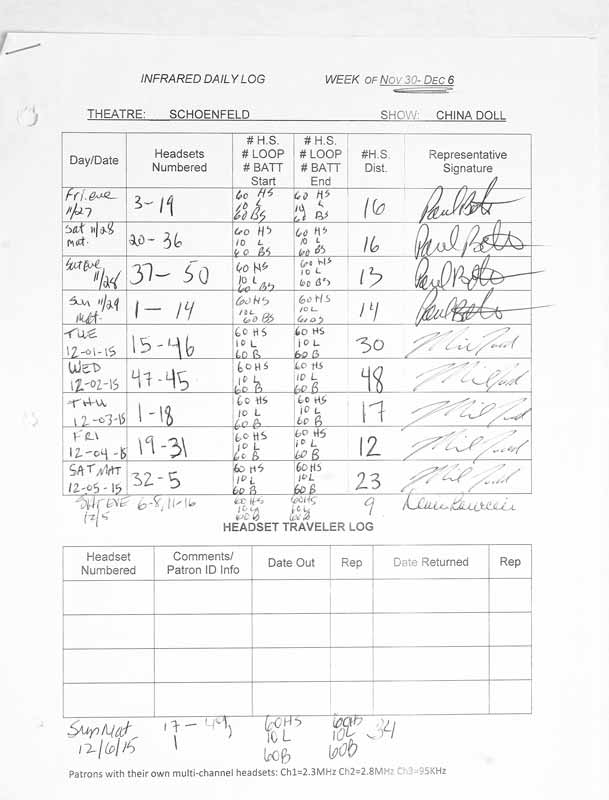 INFRARED DAILY LOG WEEK OF NOV 30- DEC 6
THEATRE: SCHOENFELD SHOW: CHINA DOLL
Day/Date Headsets Numbered # H.S. # LOOP # BATT Start # H.S. # LOOP # BATT End #H.S. Dist. Representative Signature
Fri. eve 11/27 3-19 60 HS 10 L 60 BS 60 HS 10 L 60 BS 16
Sat 11/28 mat. 20-36 60 HS 10 L 60 BS 60 HS 10 L 60 BS 16
Sat Eve 11/28 37-50 60 HS 10 L 60 BS 60 HS 10 L 60 BS 13
Sun 11/29 Mat. 1-14 60 HS 10L 60 BS 60 HS 10 L 60 BS 14
TUE 12-01-15 15-46 60 HS 10 L 60 B 60 HS 10 L 60 B 30
WED 12-02-15 47-45 60 HS 10 L 60 B 60 HS 10 L 60 B 48
THU 12-03-15 1-18 60 HS 10 L 60 B 60 HS 10 L 60 B 17
FRI 12-04-15 19-31 60 HS 10 L 60 B 60 HS 10 L 60 B 12
SAT MAT 12-05-15 32-5 60 HS 10 L 60 B 60 HS 10 L 60 B 23
SAT EVE 12/5 6-8, 11-16 60 HS 10 L 60 B 60 HS 10 L 60 B 9
HEADSET TRAVELER LOG
Headset Numbered Comments/ Patron ID Info Date Out Rep Date Returned Rep
Sun Mat 12/6/15 17-49, 1 60HS 10 L 60B 60HS 10L 60B 34
Patrons with their own multi-channel headsets: Ch1=2.3MHz Ch2=2.8MHz Ch3=95KHz